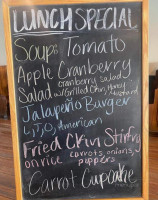 LUNCH SPECIAL
Soup: Tomato
Apple Cranberry
Salad cranberry salad
w/Grilled Chkn, Honey
Mustard
Jalapeño Burger
L,T,O, American
Fried Ckin Stirfry
on rice carrots, onions,
peppers
Carrot Cupcake